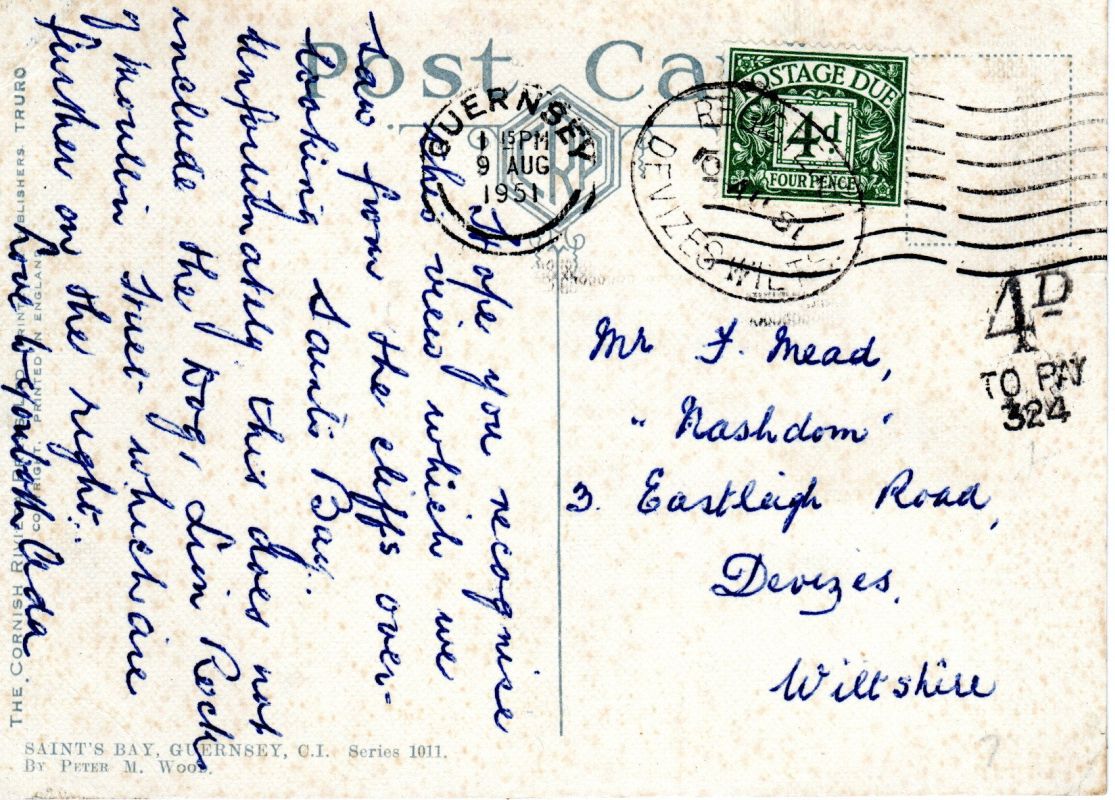 Post Ca
GUERNSEY
1 15PM
9 AUG
1951
POSTAGE DUE
4d.
FOUR PENCE
DEVIZES WILTS
4D
TO PAY
324
Hope you recognise
this view which we
saw from the cliffs over-
looking Saints Bay.
Unfortunately this does not
include the Dog, Rocks
Moulin Huet which are
further on the right.
Love to you both Ada
Mr F. Mead,
"Nashdom"
3. Eastleigh Road,
Devizes.
Wiltshire
THE CORNISH PUBLISHERS TRURO
COPYRIGHT. PRINTED IN ENGLAND
SAINT'S BAY, GUERNSEY, C.I. Series 1011.
By Peter M. Wood.